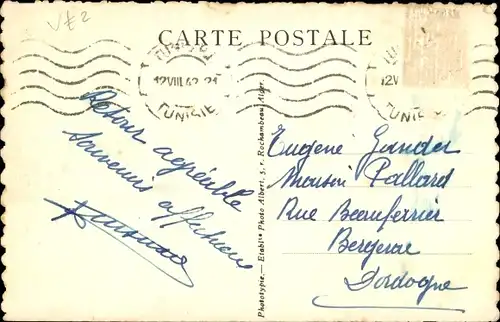 V72
CARTE POSTALE
TUNIS
12 VIII 42 21
12 V
TUNISIE
TUNISIE
Retour agréable
Souvenirs affectueux
Phototypie. — Etablts Photo Albert, 5, r. Rochambeau, Alger.
Eugène Gander
Maison Pallard
Rue Beauferrier
Bergerac
Dordogne